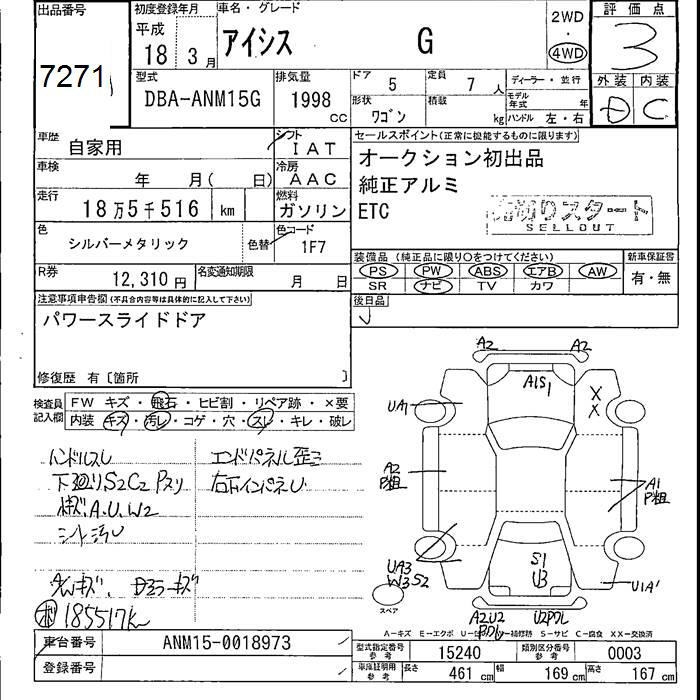 出品番号
初度登録年月
車名・グレード
2WD
評価点
平成
18 3月
アイシス
G
4WD
3
7271
型式
排気量
ドア 5
定員 7人
ディーラー・並行
外装 内装
DBA-ANM15G
1998 cc
形状 ワゴン
積載 kg
モデル年式 年
ハンドル 左・右
D C
車歴
自家用
シフト
IAT
セールスポイント(正常に機能するものに限ります)
車検
年 月( 日)
冷房
AAC
オークション初出品
純正アルミ
ETC
走行
18万5千516 km
燃料
ガソリン
売切りスタート
SELLOUT
色
シルバーメタリック
色替
色コード
1F7
装備品(純正品に限り○をつけてください)
新車保証書
PS PW ABS エアB AW
SR ナビ TV カワ
有・無
R券
12,310円
名変通知期限
月 日
注意事項申告欄(不具合内容等は具体的に記入して下さい)
後日品
パワースライドドア
修復歴 有〔箇所 〕
検査員記入欄
FW キズ・飛石・ヒビ割・リペア跡・×要
内装 キズ・汚レ・コゲ・穴・スレ・キレ・破レ
ハンドルスレ
エンドパネル歪ミ
下廻りS2C2 Pスリ
右下インパネU
キズ.A.U.W2
シート汚レ
AWキズ、Dミラーキズ
185517K
A2 A2
A1S1
X
X
UA1
A2
P粗
A1
P粗
UA3
W3S2
S1
U3
U1A1
スペア
A2U2
U2
A-キズ E-エクボ S-サビ C-腐食 XX-交換済
車台番号
ANM15-0018973
型式指定番号 参考
15240
類別区分番号 参考
0003
登録番号
車庫証明用 参考
長さ 461 cm
幅 169 cm
高さ 167 cm